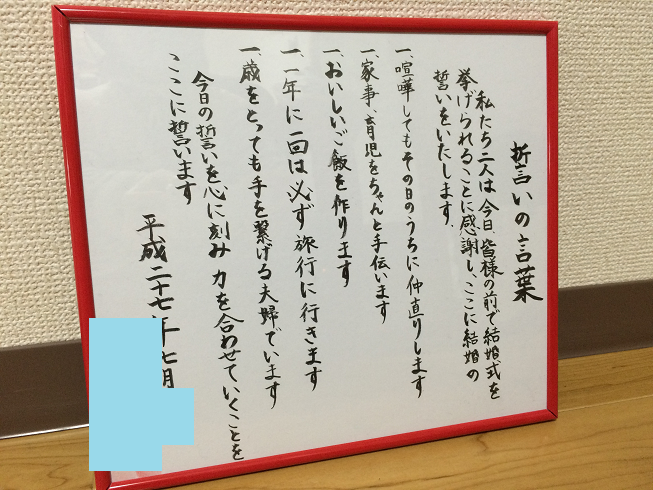 誓いの言葉
私たち二人は今日、皆様の前で結婚式を
挙げられることに感謝し、ここに結婚の
誓いをいたします。
一、喧嘩してもその日のうちに仲直りします
一、家事、育児をちゃんと手伝います
一、おいしいご飯を作ります
一、一年に一回は必ず旅行に行きます
一、歳をとっても手を繋げる夫婦でいます
今日の誓いを心に刻み 力を合わせていくことを
ここに誓います
平成二十七年七月